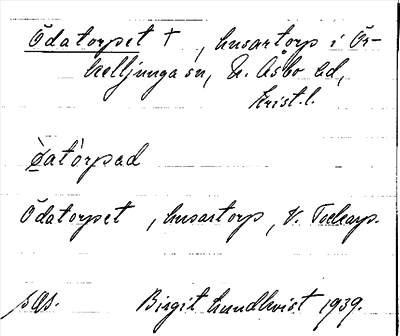 Ödatorpet †, husartorp i Ör-
kelljunga sn, N. Åsbo hd,
Krist. l.
Ödatorpet, husartorp, V. Tockarp.
sGs. Birgit Lundkvist 1939.